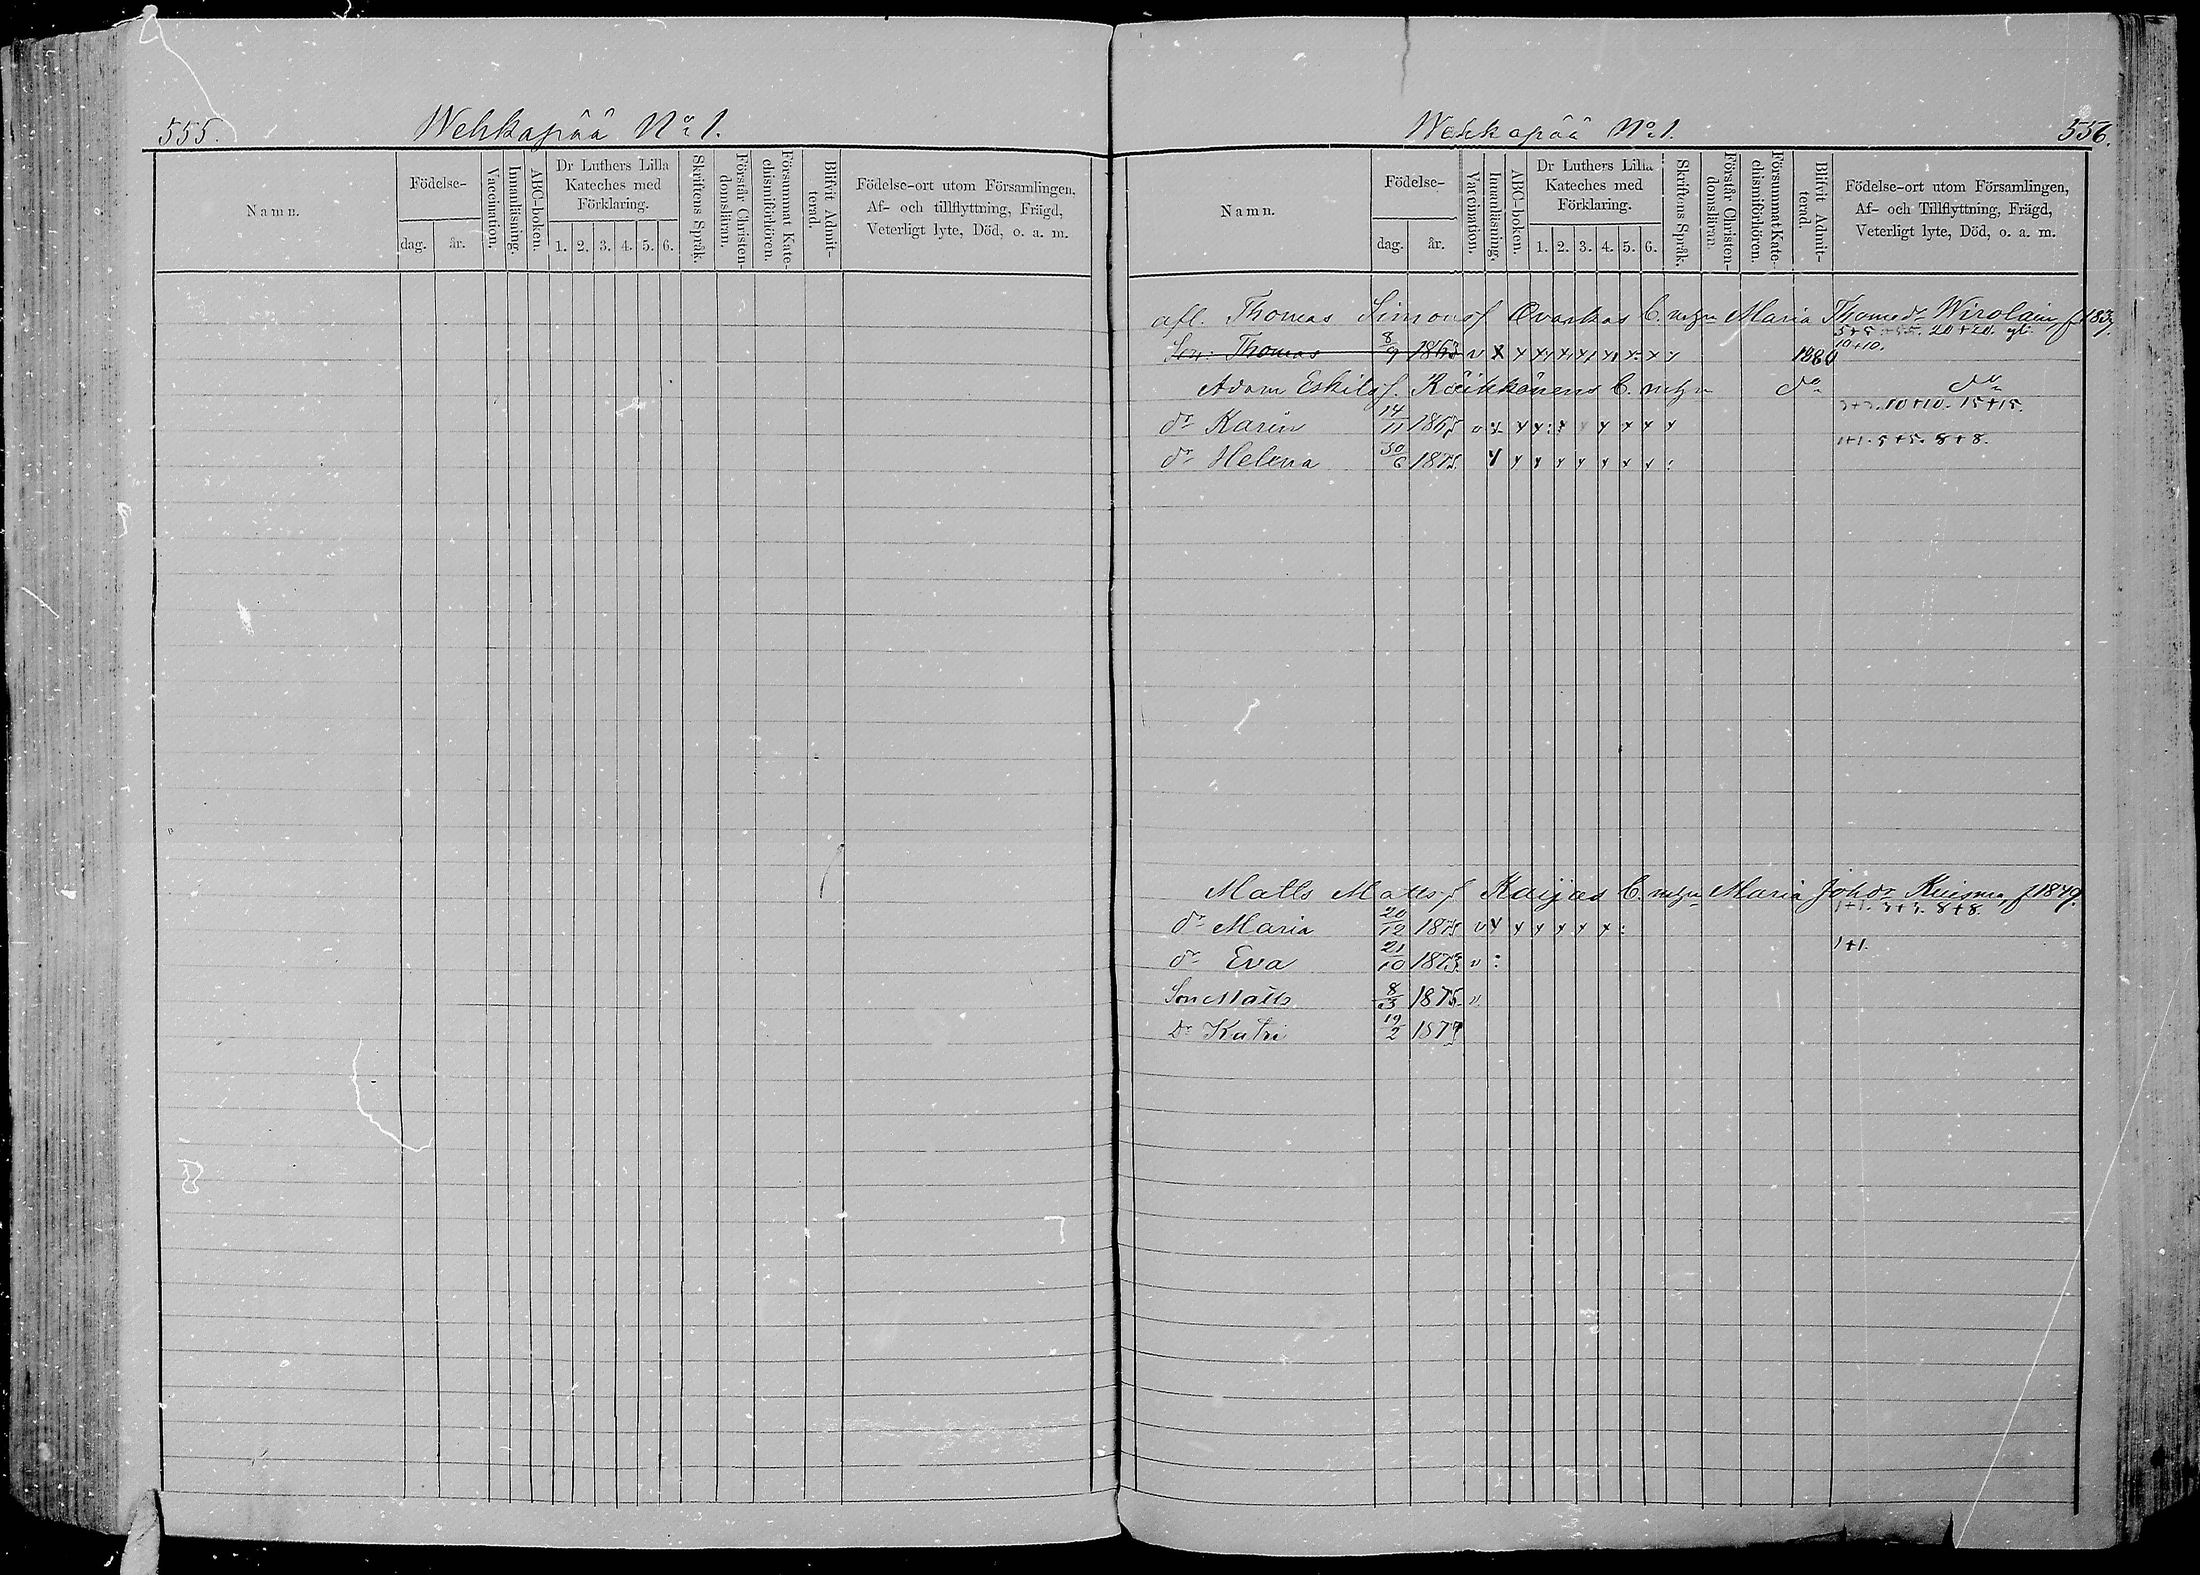 555. Wehkapää No 1.
Namn.
Födelse-
dag. år.
Vaccination.
Innanläsning.
ABC-boken.
Dr Luthers Lilla Kateches med Förklaring.
1. 2. 3. 4. 5. 6.
Skriftens Språk.
Förstår Christendomsläran.
Försummat Katechismiförhören.
Blifvit Admitterad.
Födelse-ort utom Församlingen,
Af- och tillflyttning, Frägd,
Veterligt lyte, Död, o. a. m.
Wehkapää No 1. 556.
Namn.
Födelse-
dag. år.
Vaccination.
Innanläsning.
ABC-boken.
Dr Luthers Lilla Kateches med Förklaring.
1. 2. 3. 4. 5. 6.
Skriftens Språk.
Förstår Christendomsläran.
Försummat Katechismiförhören.
Blifvit Admitterad.
Födelse-ort utom Församlingen,
Af- och Tillflyttning, Frägd,
Veterligt lyte, Död, o. a. m.
afl. Thomas Simons Maria Thomedr Wirolain
20+20.
Son: Thomas 8/9 v x x x x x x x x x 10+10.
Adam Eskils do do
10+10. 15+15.
dr Karin 14/11 v x x x x x x x
1+1. 5+5. 8+8.
dr Helena 30/6 x x x x x x x x
Matts Matts Maria Johdr f 1849.
8+8.
dr Maria 20/12 v x x x x x x
1+1.
dr Eva 21/10 1873. v :
Son Matts 1875. v
Dr Katri 19/2